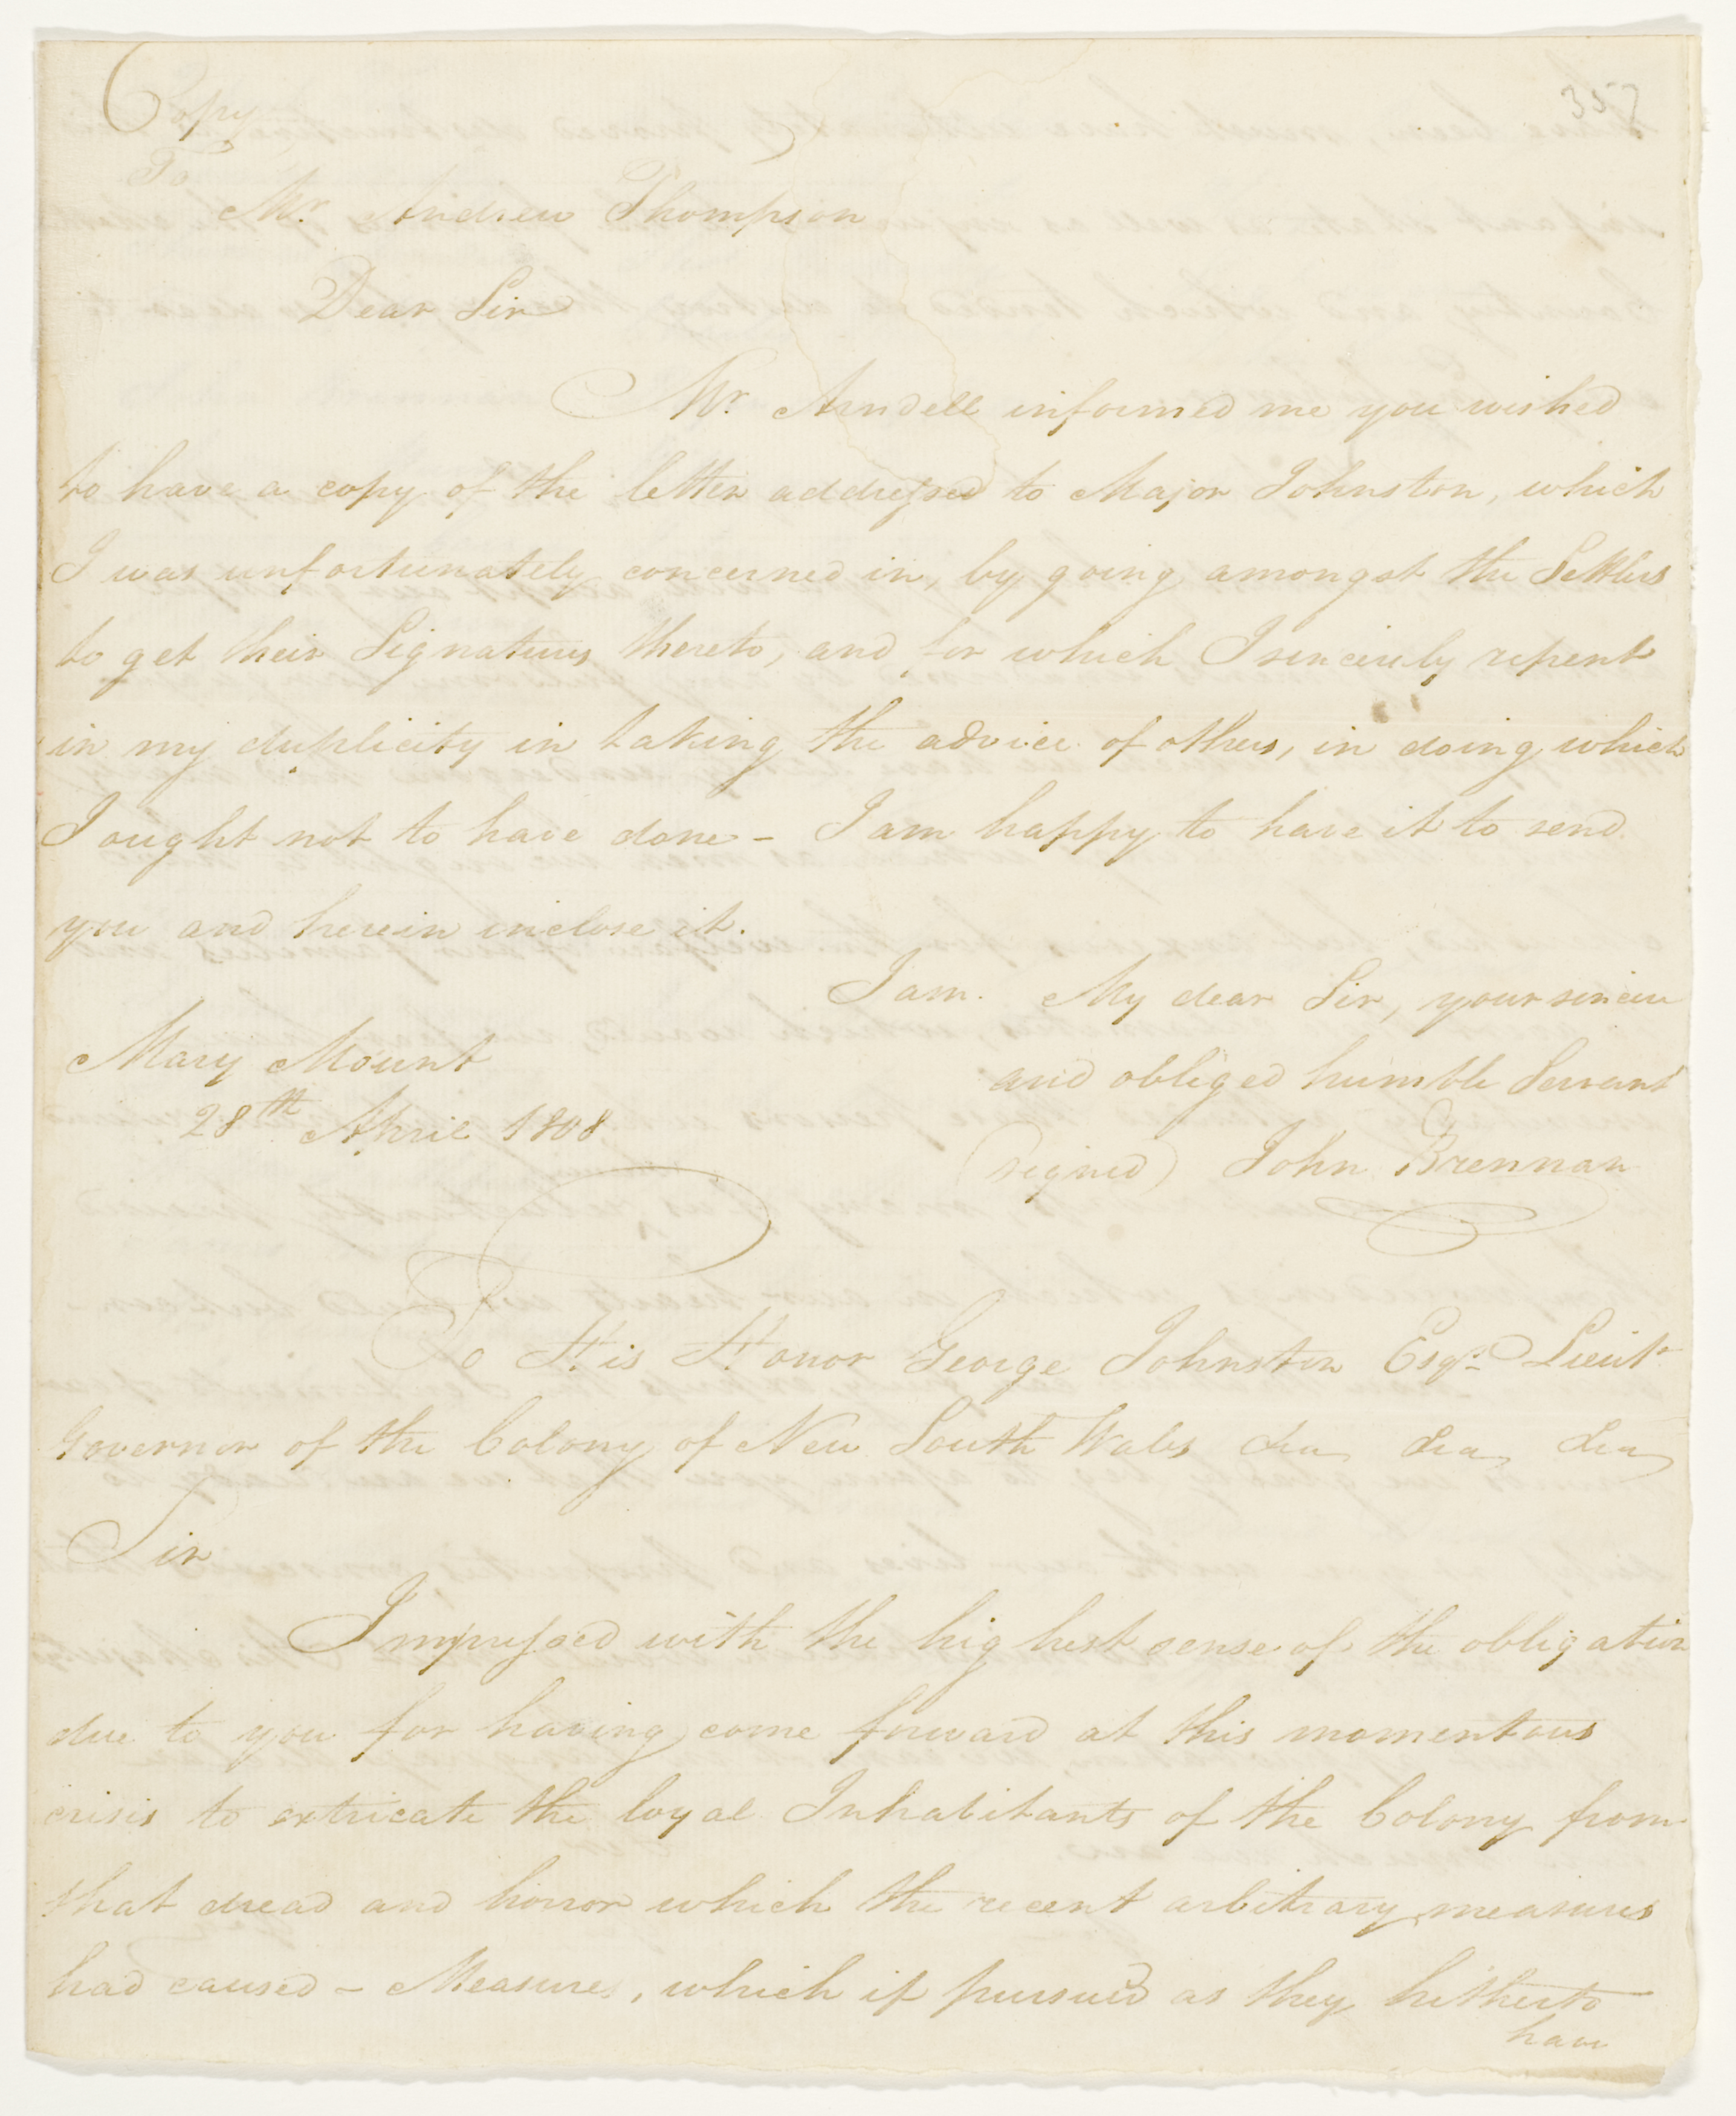 Copy
357
To
Mr. Andrew Thompson
Dear Sir
Mr. Arndell informed me you wished
to have a copy of the letter addressed to Major Johnston, which
I was unfortunately concerned in, by going amongst the Settlers
to get their Signatures thereto, and for which I sincerely repent
in my duplicity in taking the advice of others, in doing which
I ought not to have done - I am happy to have it to send
you and herein inclose it.
I am. My dear Sir, your sincere
and obliged humble Servant
(signed) John Brennan
Mary Mount
28th April 1808
To His Honor George Johnston Esqr. Lieut.
Governor of the Colony of New South Wales &ca &ca &ca
Sir
Impressed with the highest sense of the obligation
due to you for having come forward at this momentous
crisis to extricate the loyal Inhabitants of the Colony from
that dread and horror which the recent arbitrary measures
had caused - Measures, which if pursued as they hitherto
have